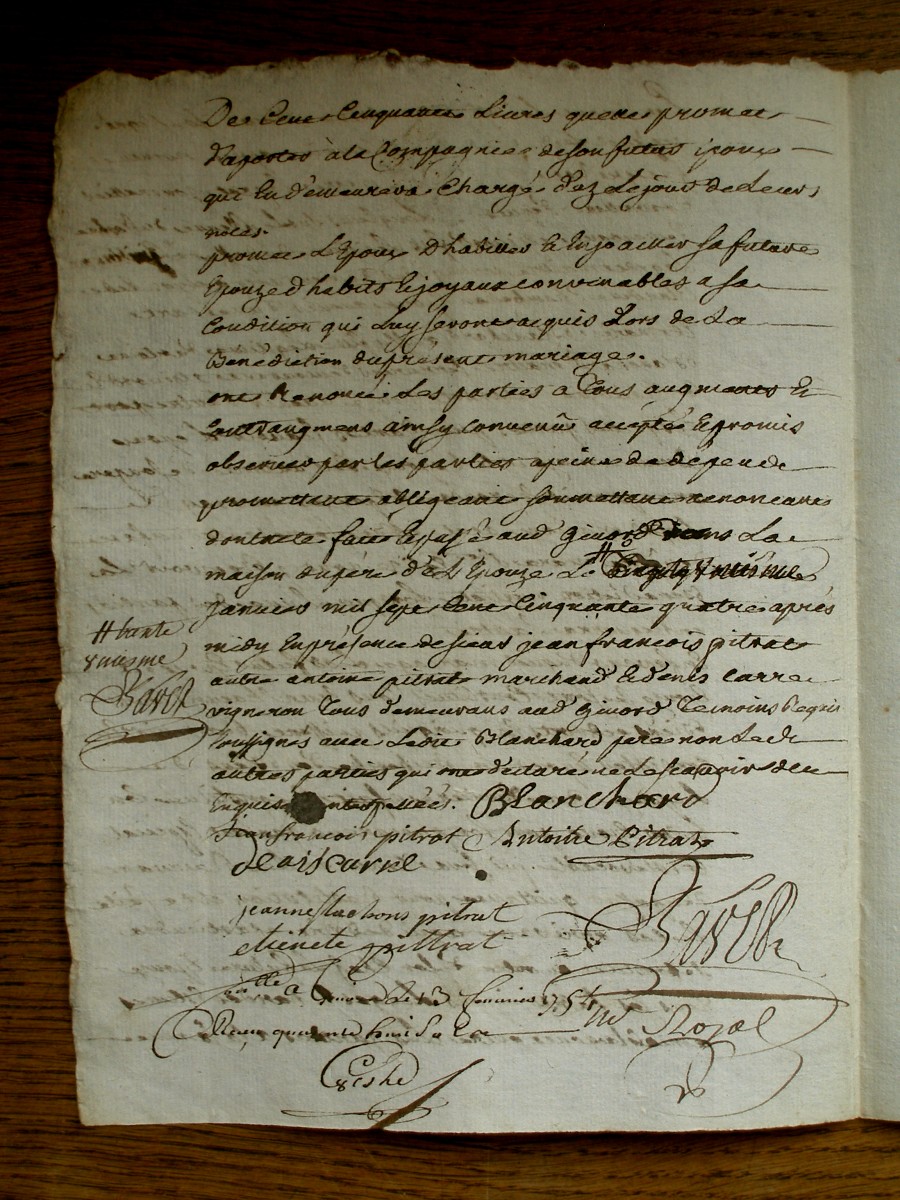 De Cent Cinquante Livres quelle promet
D'aporter à la Compagnie de son futur époux
qui En demeurera Chargé dez Le jour de Leurs
noces.
promet L'Epoux D'habiller & Enjoailler sa future
Epouze d'habits & joyaux convenables a sa
Condition qui Luy seront acquis Lors de La
Bénédiction du présent mariage.
ont Renoncé Les parties a tous augments Et
Contraugmens ainsy convenû accepté & promis
observer par les parties a peine de dépend
promettant obligeant soumettant renonceant
dont acte fait & passé aud Givord dans La
maison du père de L'Epouze Le #
Janvier mil sept Cent Cinquante quatre après
midy En présence de sieur jean françois pitrat
autre antoine pitrat marchand & denis carre
vigneron Tous demeurans aud Givord Temoins Requis
soussignés avec Ledit Blanchard pere non Led
autres parties qui ont déclaré ne Le scavoir de ce
Enquis interpellées. Blanchard
# trante
unieme
Jean francois pitrat Antoine Pitrat
Denis carre
jeanne pitrat
etienete pittrat
a Givord le 13 fevrier 1754
Reçu quarente huit sols
Royal